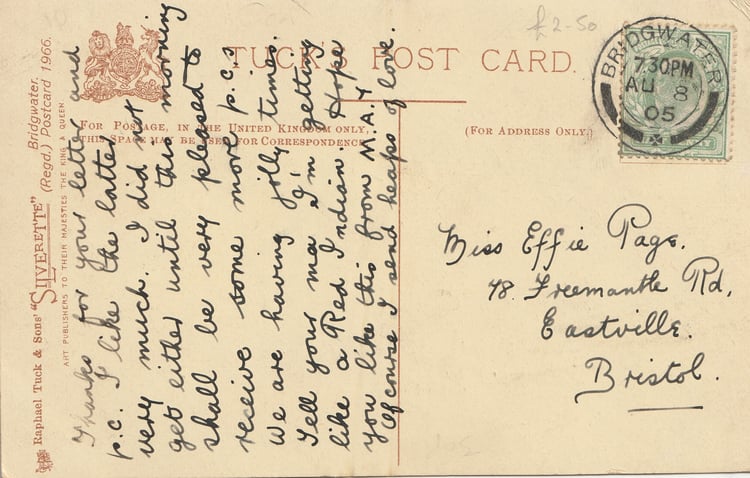 £2-50
TUCK'S POST CARD.
FOR POSTAGE, IN THE UNITED KINGDOM ONLY,
THIS SPACE MAY BE USED FOR CORRESPONDENCE
(FOR ADDRESS ONLY.)
BRIDGWATER
7.30PM
AU 8
05
Raphael Tuck & Sons' "SILVERETTE" Bridgwater.
(Regd.) Postcard 1966.
ART PUBLISHERS TO THEIR MAJESTIES THE KING & QUEEN
Thanks for your letter and
p.c. I like the latter
very much. I did not
get either until this morning
shall be very pleased to
receive some more p.c.s
We are having jolly times.
Tell your ma I'm getting
like a Red Indian. Hope
you like this from M.A.Y
Of course I send heaps of love.
Miss Effie Page.
78 Freemantle Rd,
Eastville.
Bristol.